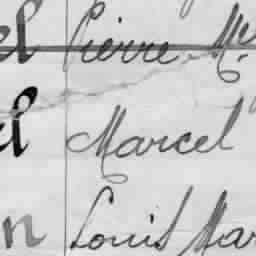 el Pierre M
el Marcel
n Louis Mar